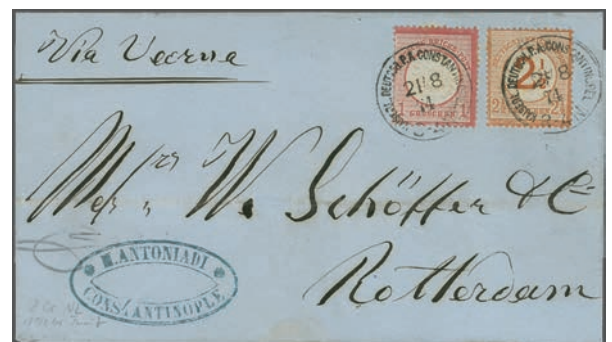 Via Vaerna
1 GROSCHEN 1
2½
KAISERL. DEUTSCH. P.A. CONSTANTINOPEL
21 8
74
KAISERL. DEUTSCH. P.A. CONSTANTINOPEL
8
74
Messrs W. Schöffer & C
Rotterdam
M. ANTONIADI
CONSTANTINOPLE